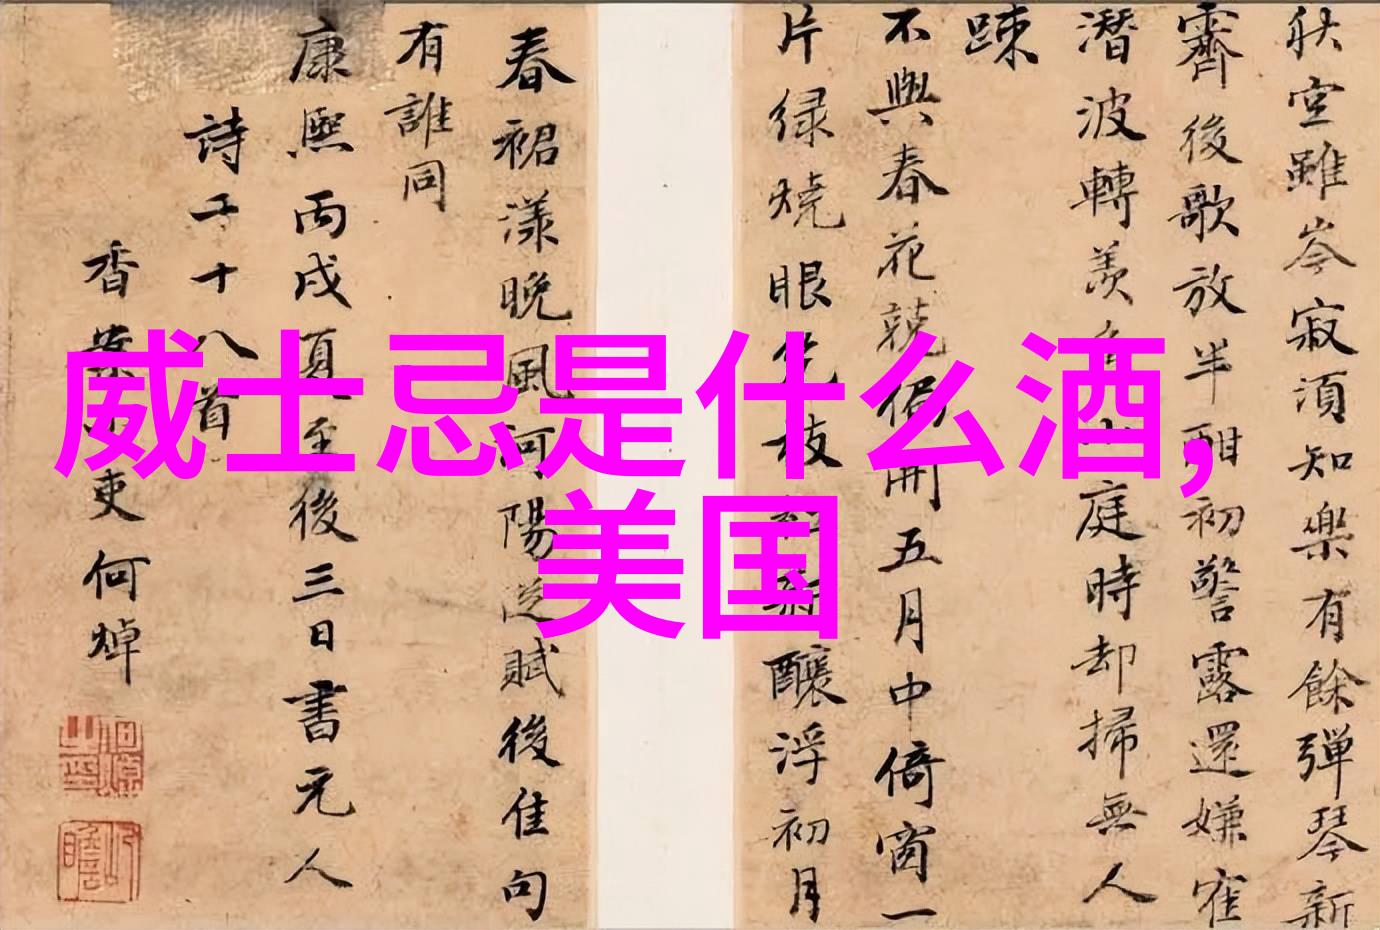 秋空雖岑寂須知樂有餘彈琴新
霽後歌放半酣初警露還嫌
潛波轉羡魚山庭時却掃無人
踈
不與春花競偏開五月中倚窗一
片緑燒眼幾枝紅新釀浮初月
春裙漾晚風河陽從賦後佳句
有誰同
康熙丙戌夏至後三日書元人
詩二十八首
香案小吏何焯
威士忌是什么酒,
美国